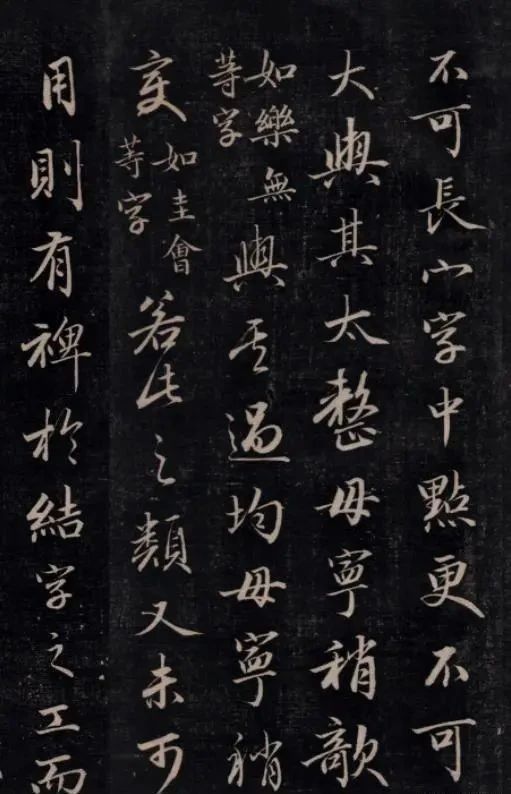 不可長宀字中點更不可
大與其太整毋寧稍欹
如樂無
等字
與其過均毋寧稍
変
如圭會
等字
若此之類又未可
用則有裨於結字之工而